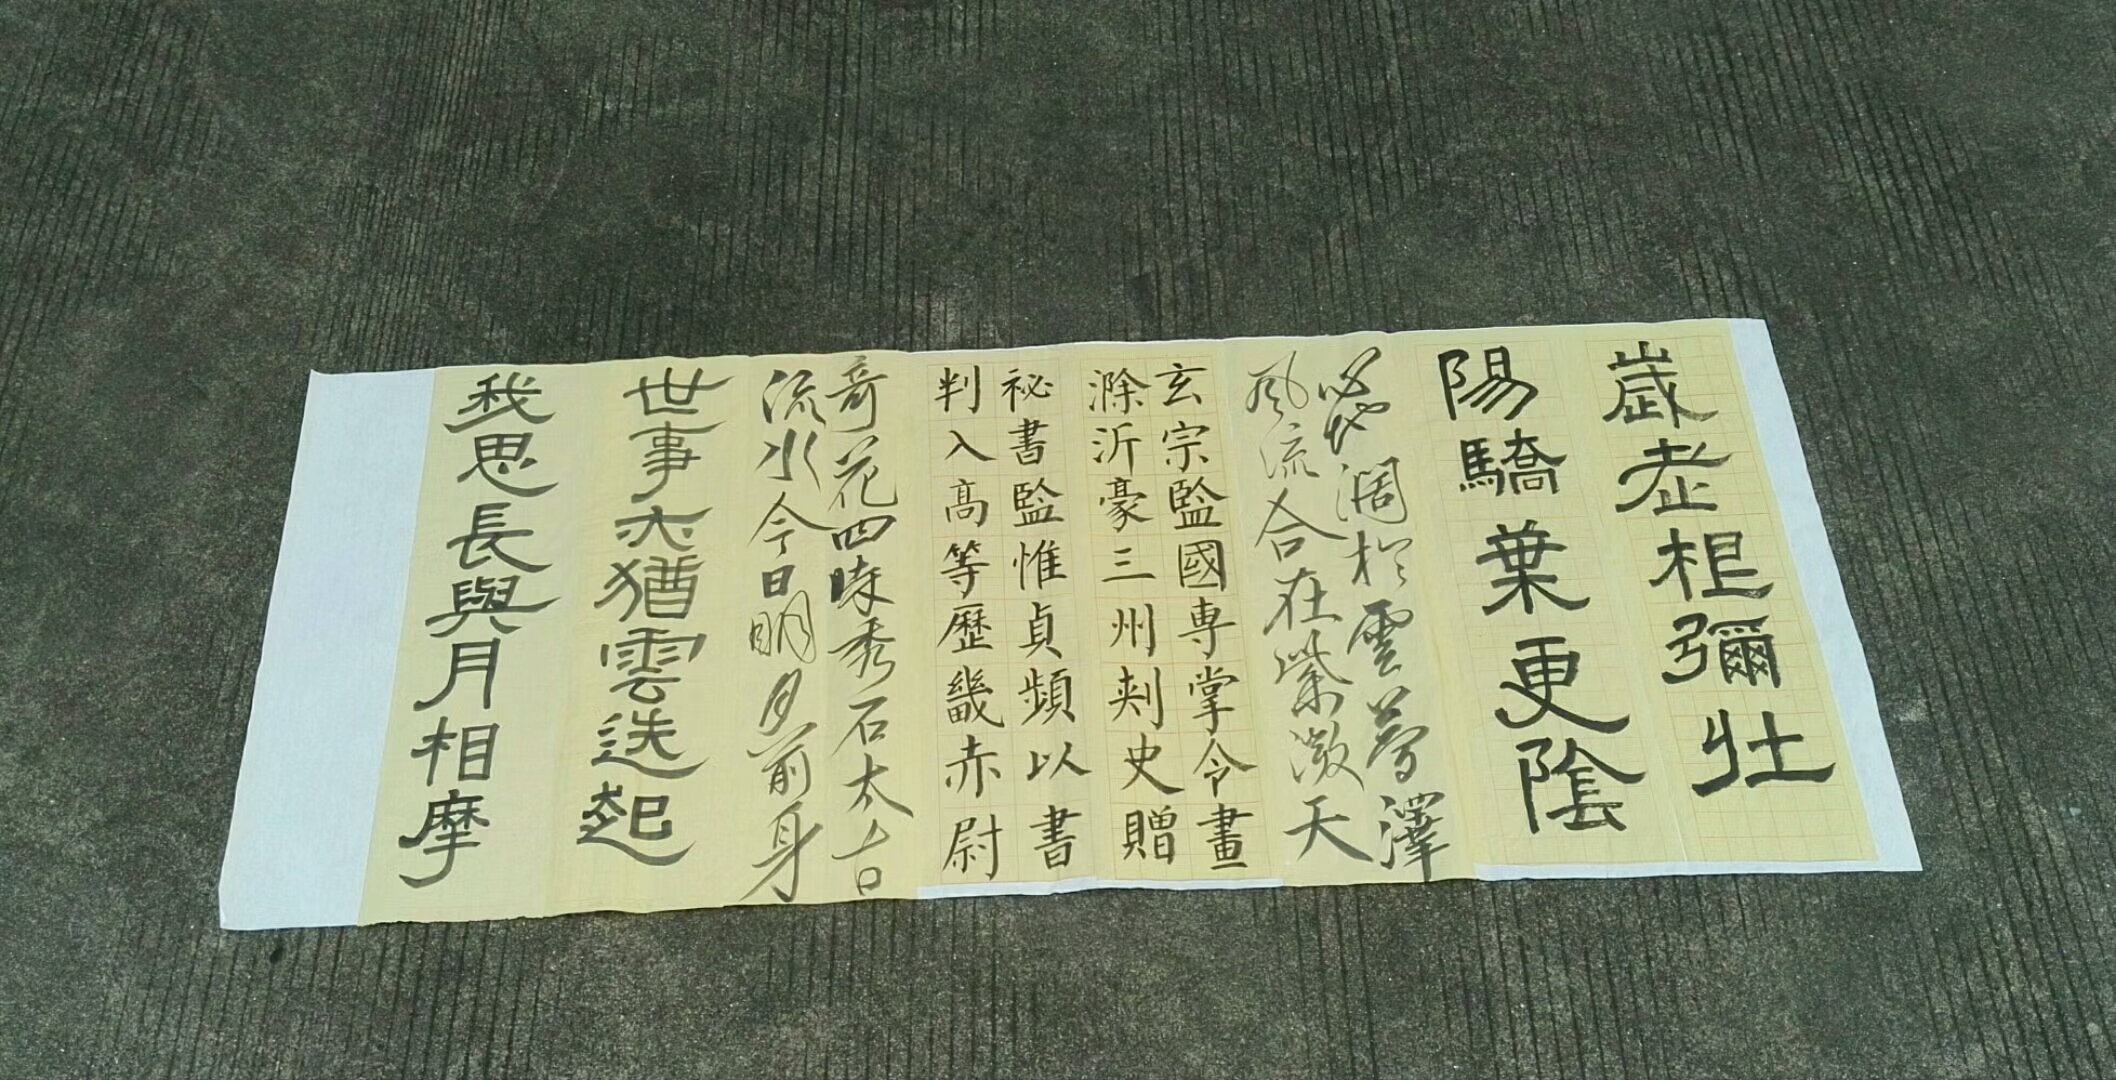 歲老根彌壯
陽驕葉更陰
心地潤於雲夢澤
風流合在紫微天
玄宗監國專掌令畫
滁沂豪三州刺史贈
祕書監惟貞頻以書
判入高等歷畿赤尉
奇花四時秀石太古
流水今日明月前身
世事亦猶雲迭起
我思長與月相摩